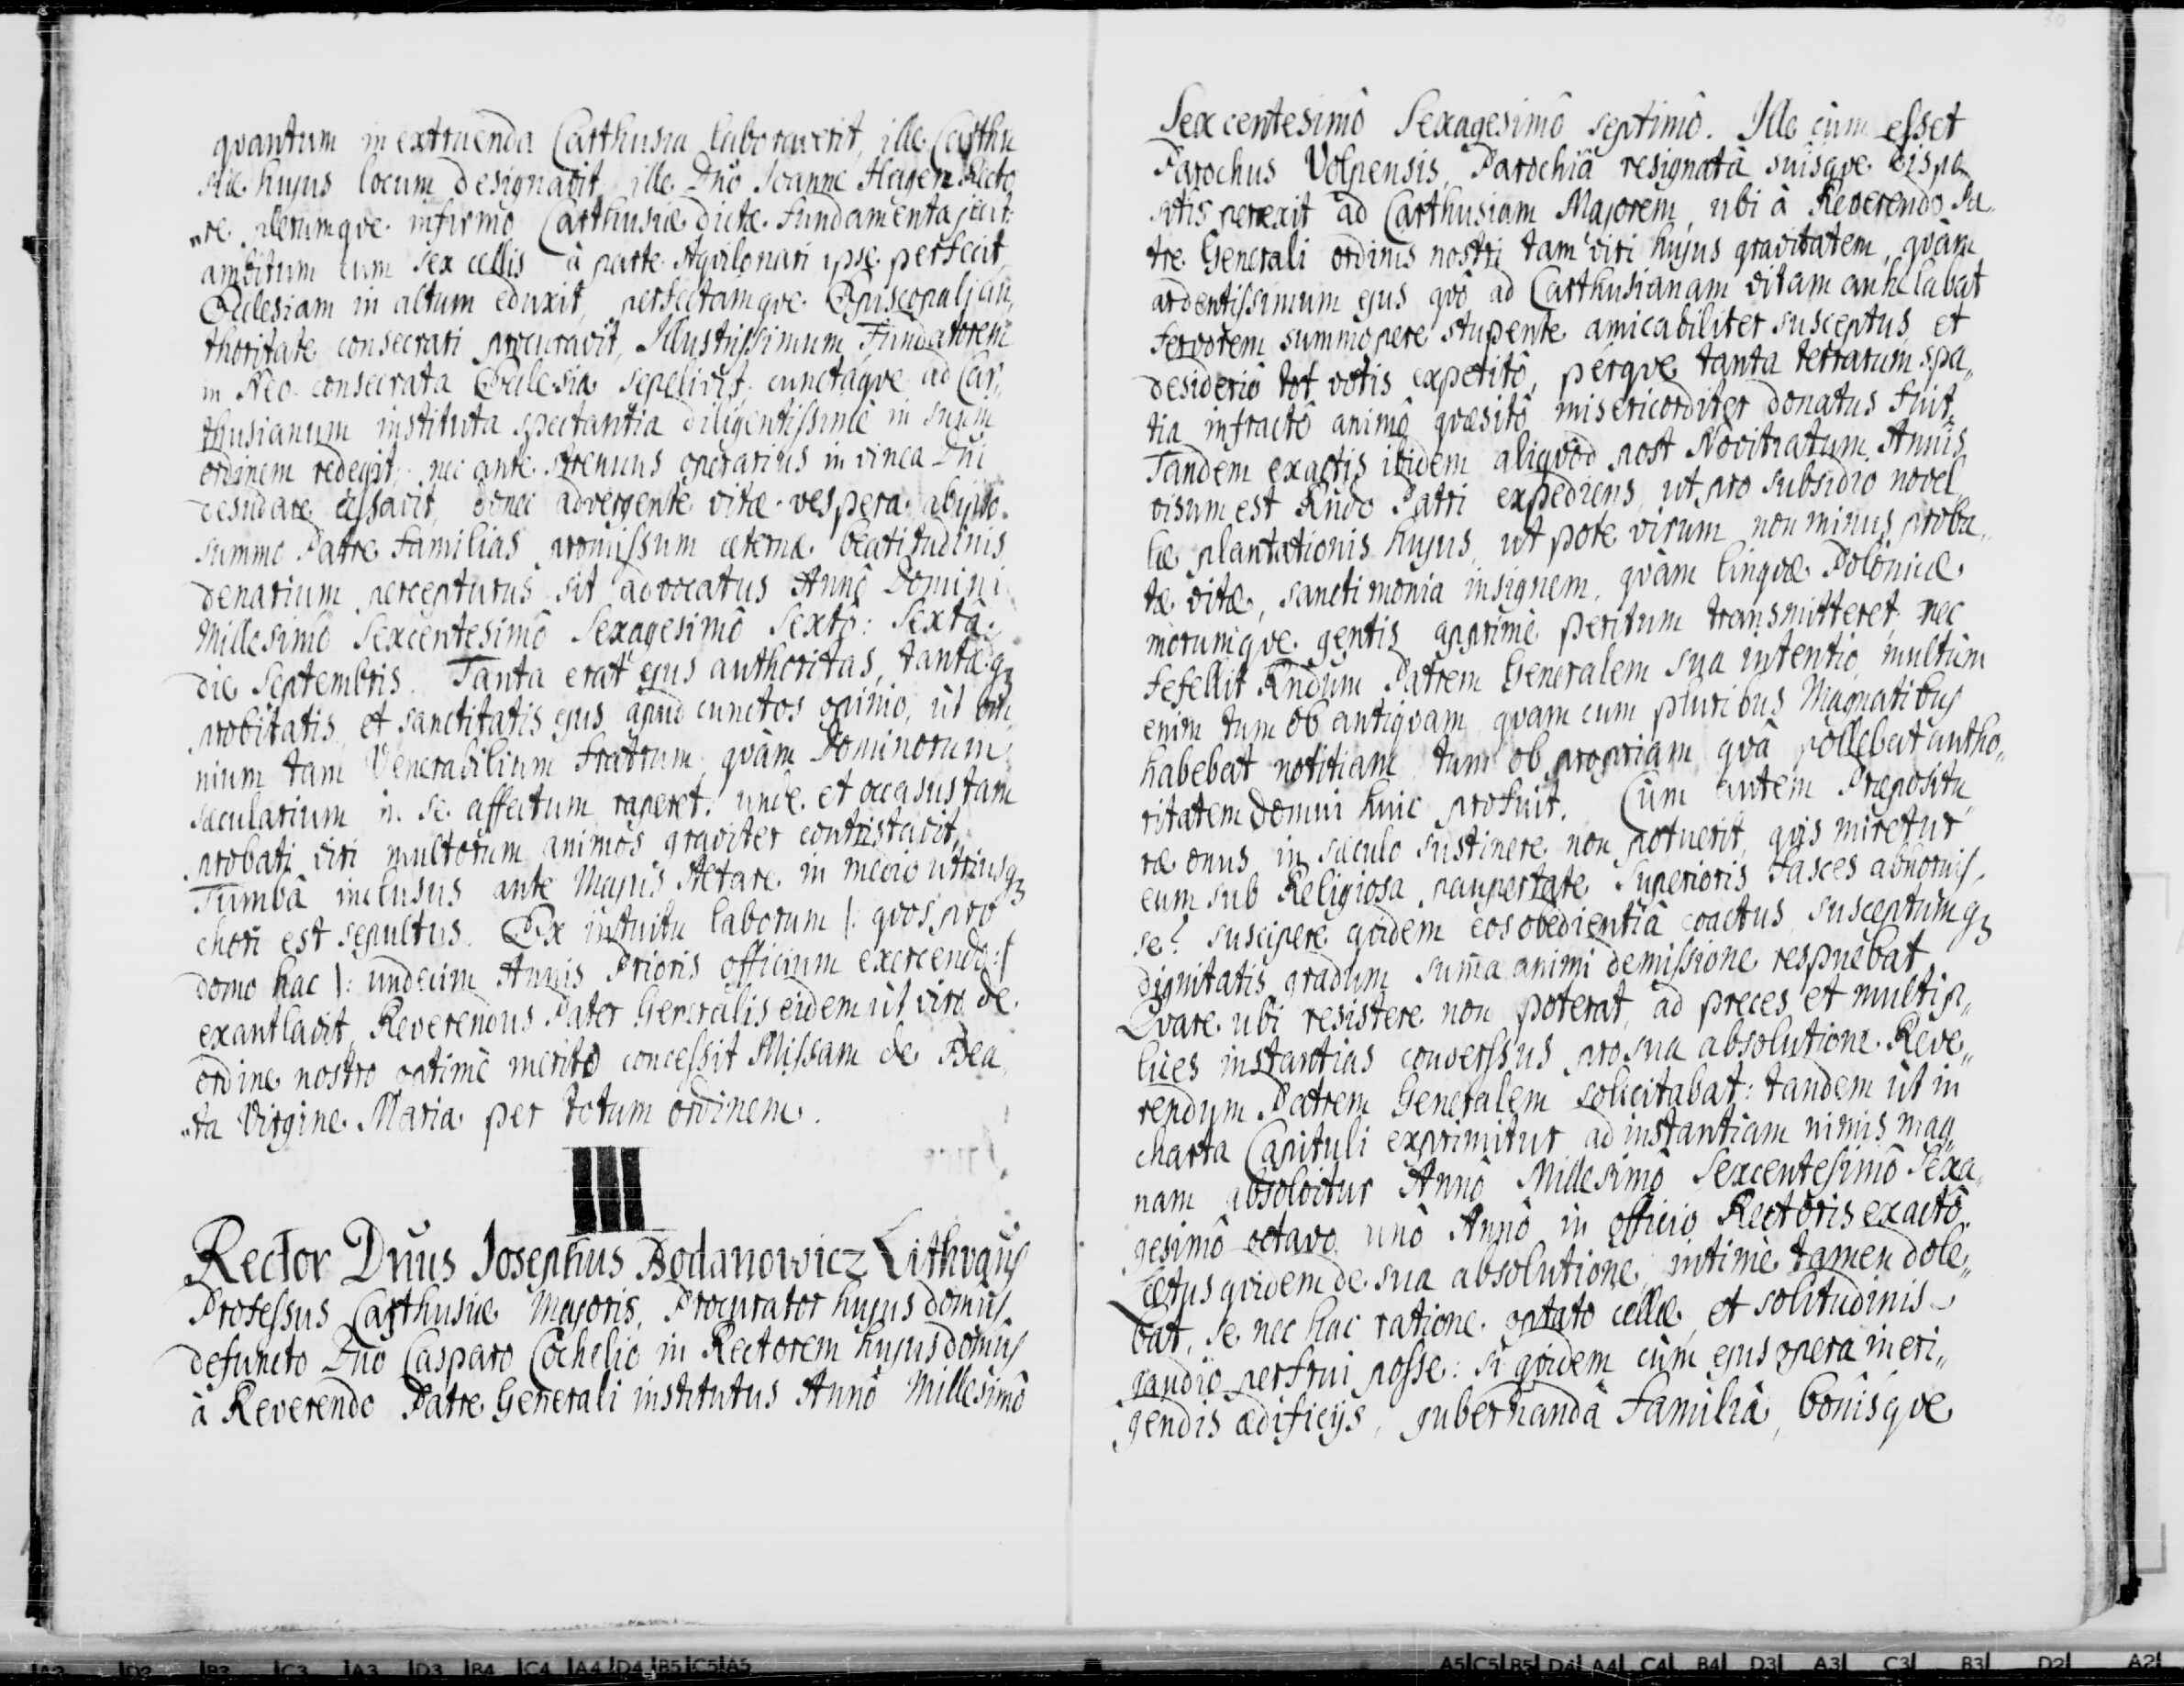 quantum in extruenda Carthusia laboraverit, ille Carthu
siæ hujus locum designavit, ille Dnō Joanne Hagen Recto
„re plerumqve infirmo Carthusiæ dictæ fundamenta jecit:
ambitum cum sex cellis à parte Aqvilonari ipse perfecit,
Ecclesiam in altum eduxit, perfectamqve Episcopali au„
thoritate consecrari procuravit, Illustrissimum Fundatorem
in Neo consecrata Ecclesia sepelivit, cunctaqve ad Car„
thusianum instituta spectantia diligentissimè in suum
ordinem redegit; nec ante strenuus operarius in vinea Dni
desudare cessavit, donec advergente vitæ vespera, ab illo
summo Patre Familias promissum æternæ beatitudinis
denarium percepturus sit advocatus Annô Domini
Millesimô Sexcentesimô Sexagesimô Sextô: Sextâ
die Septembris. Tanta erat ejus authoritas, tantaq3
probitatis et sanctitatis ejus apud cunctos opinio, ut om
nium tam Venerabilium Fratrum, qvàm Dominorum
sæcularium in se affectum raperet: unde et occasus tam
probati viri multorum animos graviter contristavit,
Tumbâ inclusus ante Majus Altare in medio utriusq3
chori est sepultus. Ex intuitu laborum |: qvos pro
domo hac |: undecim Annis Prioris officium exercendo :|
exantlavit, Reverendus Pater Generalis eidem ut viro de
ordine nostro optimè meritô concessit Missam de Bea
„ta Virgine Maria per totum ordinem.
III
Rector Dnus Josephus Bodanowicz Lithvaus
Professus Carthusiæ Majoris, Procurator hujus domus,
defuncto Dnō Casparo Cochelio in Rectorem hujus domus
à Reverendo Patre Generali institutus Annô Millesimô
Sexcentesimô Sexagesimô septimô. Ille cùm esset
Parochus Volpensis, Parochiâ resignatâ suisqve dispo
sitis perrexit ad Carthusiam Majorem, ubi à Reverendo Pa
tre Generali ordinis nostri tam viri hujus gravitatem, qvàm
ardentissimum ejus qvô ad Carthusianam vitam anhelabat
fervorem summopere stupente amicabiliter susceptus, et
desideriô tot votis expetitô, perqve tanta terrarum spa„
tia infractô animô qvæsitô misericorditer donatus fuit.
Tandem exactis ibidem aliqvod post Novitiatum Annis
visum est Rndo Patri expediens, ut pro subsidio novel„
læ plantationis hujus, ut pote virum non minus proba„
tæ vitæ, sanctimonia insignem, qvàm lingvæ Polonicæ
morumqve gentis apprimè peritum transmitteret, nec
fefellit Rndum Patrem Generalem sua intentio, multùm
enim tum ob antiqvam, qvam cum pluribus Magnatibus
habebat notitiam, tum ob propriam, qvâ pollebat autho„
ritatem Domui huic profuit. Cùm autem Præpositu
ræ onus in sæculo sustinere non potuerit, qvis miretur
eum sub Religiosa paupertate Superioris fasces abhorruis„
se? suscipere qvidem eos obedientiâ coactus, susceptumq3
dignitatis gradum summa animi demissione respuebat.
Qvare ubi resistere non poterat, ad preces et multip„
lices instantias conversus, pro sua absolutione Reve„
rendum Patrem Generalem solicitabat: tandem ut in
charta Capituli exprimitur, ad instantiam nimis mag„
nam absolvitur Annô Millesimô Sexcentesimô Sexa„
gesimô octavo, unô Annô in officio Rectoris exactô,
Lætus qvidem de sua absolutione, intimè tamen dole„
bat, se nec hac ratione optato cellæ et solitudinis
gaudio perfrui posse: si qvidem cùm ejus opera in eri„
gendis ædificijs, gubernandâ Familiâ, bonisqve